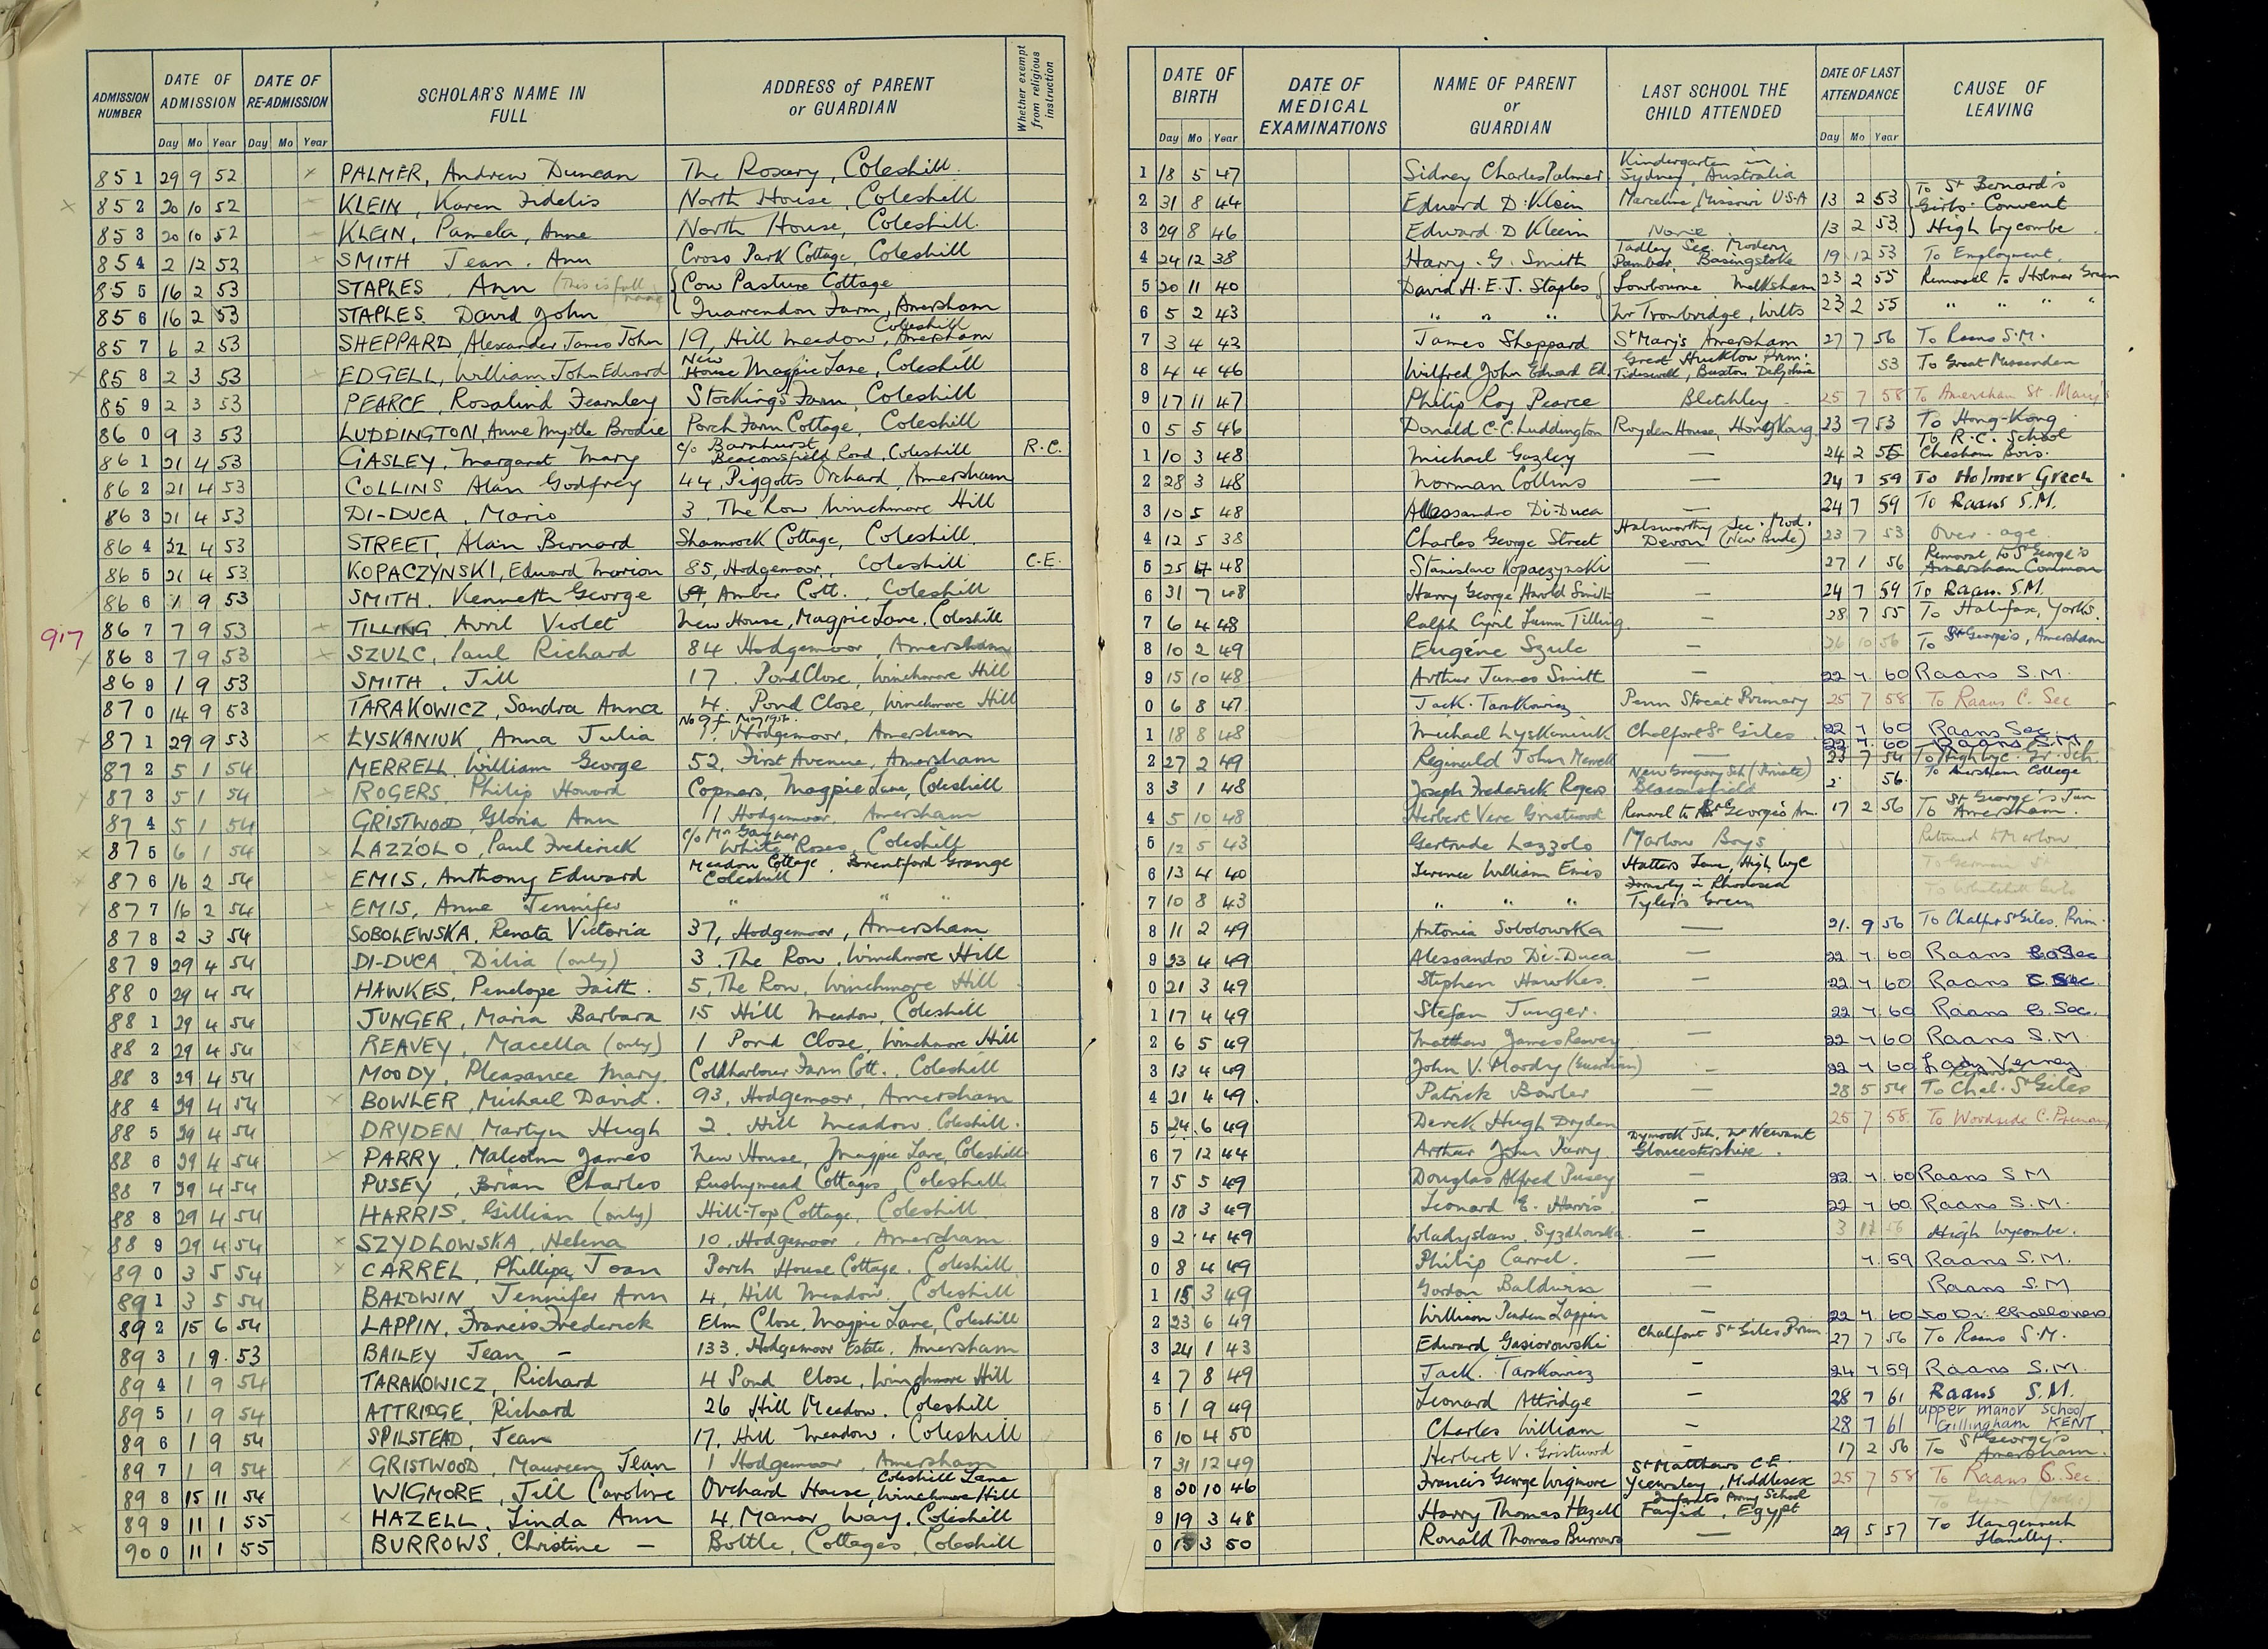 ADMISSION NUMBER | DATE OF ADMISSION Day Mo Year | DATE OF RE-ADMISSION Day Mo Year | SCHOLAR'S NAME IN FULL | ADDRESS of PARENT or GUARDIAN | Whether exempt from religious instruction
851 29 9 52 PALMER, Andrew Duncan The Rosary, Coleshill.
852 20 10 52 KLEIN, Karen Fidelis North House, Coleshill
853 20 10 52 KLEIN, Pamela, Anne North House, Coleshill.
854 2 12 52 SMITH Jean. Ann Cross Park Cottage, Coleshill
855 16 2 53 STAPLES, Ann (This is full name) Cow Pasture Cottage
856 16 2 53 STAPLES David John Quarrendon Farm, Amersham
857 6 2 53 SHEPPARD, Alexander James John 19, Hill Meadow, Coleshill Amersham
858 2 3 53 EDGELL, William John Edward New House Magpie Lane, Coleshill
859 2 3 53 PEARCE, Rosalind Fearnley Stockings Farm, Coleshill
860 9 3 53 LUDDINGTON, Anne Myrtle Brodie Porch Farm Cottage, Coleshill
861 21 4 53 GASLEY, Margaret Mary c/o Barnhurst Beaconsfield Road, Coleshill R.C.
862 21 4 53 COLLINS Alan Godfrey 44, Piggotts Orchard, Amersham
863 21 4 53 DI-DUCA, Mario 3, The Row Winchmore Hill
864 22 4 53 STREET, Alain Bernard Shamrock Cottage, Coleshill.
865 21 4 53 KOPACZYNSKI, Edward Marion 85, Hodgemoor, Coleshill C.E.
866 1 9 53 SMITH. Kenneth George Amber Cott., Coleshill
917
867 7 9 53 TILLING Avril Violet New House, Magpie Lane, Coleshill
868 7 9 53 SZULC, Paul Richard 84 Hodgemoor, Amersham
869 1 9 53 SMITH, Jill 17. Pond Close, Winchmore Hill
870 14 9 53 TARAKOWICZ, Sandra Anna 4. Pond Close, Winchmore Hill
871 29 9 53 ŁYSKANIUK Anna Julia Hodgemoor, Amersham
872 5 1 54 MERRELL, William George 52, First Avenue, Amersham
873 5 1 54 ROGERS, Philip Howard Copners, Magpie Lane, Coleshill
874 5 1 54 GRISTWOOD, Gloria Ann 11 Hodgemoor, Amersham
875 6 1 54 LAZZOLO, Paul Frederick c/o Mr Gayner White Roses, Coleshill
876 16 2 54 EMIS, Anthony Edward Meadow Cottage, Brentford Grange Coleshill
877 16 2 54 EMIS, Anne Jennifer " " "
878 2 3 54 SOBOLEWSKA, Renata Victoria 37, Hodgemoor, Amersham
879 29 4 54 DI-DUCA, Dilia (only) 3. The Row, Winchmore Hill
880 29 4 54 HAWKES, Penelope Faith. 5, The Row, Winchmore Hill
881 29 4 54 JUNGER, Maria Barbara 15 Hill Meadow, Coleshill
882 29 4 54 REAVEY, Macella (only) 1 Pond Close, Winchmore Hill
883 29 4 54 MOODY, Pleasance Mary. Coldharbour Farm Cott., Coleshill
884 29 4 54 BOWLER, Michael David. 93, Hodgemoor, Amersham
885 29 4 54 DRYDEN, Martyn Hugh 2. Hill Meadow. Coleshill.
886 29 4 54 PARRY, Malcolm James New House, Magpie Lane, Coleshill
887 29 4 54 PUSEY, Brian Charles Rushymead Cottages, Coleshill
888 29 4 54 HARRIS, Gillian (only) Hill-Top Cottage, Coleshill
889 29 4 54 SZYDLOWSKA, Helena 10, Hodgemoor, Amersham
890 3 5 54 CARREL, Phillipa Joan Porch House Cottage. Coleshill
891 3 5 54 BALDWIN Jennifer Ann 4, Hill Meadow. Coleshill
892 15 6 54 LAPPIN, Francis Frederick Elm Close, Magpie Lane, Coleshill
893 1 9 53 BAILEY Jean - 133. Hodgemoor Estate, Amersham
894 1 9 54 TARAKOWICZ, Richard 4 Pond Close, Winchmore Hill
895 1 9 54 ATTRIDGE, Richard 26 Hill Meadow. Coleshill
896 1 9 54 SPILSTEAD, Jean 17, Hill Meadow, Coleshill
897 1 9 54 GRISTWOOD, Maureen Jean 1 Hodgemoor, Amersham
898 15 11 54 WIGMORE, Jill Caroline Orchard House, Coleshill Lane Winchmore Hill
899 11 1 55 HAZELL, Linda Ann 4, Manor Way, Coleshill
900 11 1 55 BURROWS, Christine - Bottle, Cottages, Coleshill
DATE OF BIRTH Day Mo Year | DATE OF MEDICAL EXAMINATIONS | NAME OF PARENT or GUARDIAN | LAST SCHOOL THE CHILD ATTENDED | DATE OF LAST ATTENDANCE Day Mo Year | CAUSE OF LEAVING
1 18 5 47 Sidney Charles Palmer Kindergarten in Sydney, Australia
2 31 8 44 Edward D. Klein Marceline, Missouri U.S.A 13 2 53 To St Bernard's Girls' Convent
3 29 8 46 Edward D Klein None 13 2 53 High Wycombe
4 24 12 38 Harry. G. Smith Tadley Sec. Modern Pamber, Basingstoke 19 12 53 To Employment.
5 20 11 40 David H.E.J. Staples Lowbourne Melksham 23 2 55 Removal to Holmer Green
6 5 2 43 " " " Nr Trowbridge, Wilts 23 2 55 " " " "
7 3 4 42 James Sheppard St Mary's Amersham 27 7 56 To Raans S.M.
8 4 4 46 Wilfred John Edward Ed. Great Hucklow Prim. Tideswell, Buxton Derbyshire 53 To Great Missenden
9 17 11 47 Philip Roy Pearce Bletchley 25 7 58 To Amersham St. Mary's
0 5 5 46 Donald C.C. Luddington Royden House, Hong Kong 23 7 53 To Hong-Kong
1 10 3 48 Michael Gazley — 24 2 55 To R.C. School Chesham Bois.
2 28 3 48 Norman Collins — 24 7 59 To Holmer Green
3 10 5 48 Alessandro Di-Duca — 24 7 59 To Raans S.M.
4 12 5 38 Charles George Street Holsworthy Sec. Mod. Devon (Near Bude) 23 7 53 Over-age
5 25 48 Stanislaw Kopaczynski — 27 1 56 Removal to St George's Amersham Common
6 31 7 48 Harry George Harold Smith — 24 7 59 To Raans. S.M.
7 6 4 48 Ralph Cyril Lumn Tilling — 28 7 55 To Halifax, Yorks.
8 10 2 49 Eugene Szulc — 26 10 56 To St George's, Amersham
9 15 10 48 Arthur James Smith — 22 7 60 Raans S.M.
0 6 8 47 Jack. Tarakowicz Penn Street Primary 25 7 58 To Raans C. Sec
1 18 8 48 Michael Lyskaniuk Chalfont St Giles 22 7 60 Raans Sec
22 7. 60 Raans S.M.
2 27 2 49 Reginald John Merrell — 23 7 54 To High Wyc. Gr. Sch.
3 3 1 48 Joseph Frederick Rogers New Gregory Sch (Private) Beaconsfield 2 56. To Amersham College
4 5 10 48 Herbert Vere Gristwood Removal to St George's Am. 17 2 56 To St George's Jun Amersham.
5 12 5 43 Gertrude Lazzolo Marlow Boys Returned to Marlow
6 13 4 40 Terence William Emis Hatters Lane, High Wyc Formerly in Rhodesia
7 10 8 43 " " " Tyler's Green To Whitehill Girls
8 11 2 49 Antonia Sobolowska — 21. 9 56 To Chalfont St Giles. Prim.
9 23 4 49 Alessandro Di-Duca — 22 7 60 Raans Co Sec
0 21 3 49 Stephen Hawkes. — 22 7 60 Raans C. Sec.
1 17 4 49 Stefan Junger. — 22 7 60 Raans C. Sec.
2 6 5 49 Matthew James Reavey — 22 7 60 Raans S.M.
3 13 4 49 John V. Moody (Guardian) - 22 7 60 Lady Verney
4 21 4 49. Patrick Bowler — 28 5 54 To Chal. St Giles
5 24.6 49 Derek Hugh Dryden 25 7 58. To Woodside C. Primary
6 7 12 44 Arthur John Parry Dymock Sch. Nr Newent Gloucestershire.
7 5 5 49 Douglas Alfred Pusey — 22. 7. 60 Raans S M
8 18 3 49 Leonard E. Harris. — 22 7 60 Raans S.M.
9 2 4 49 Wladyslaw. Szydlowska — 3 11 56 High Wycombe.
0 8 4 49 Philip Carrel. — 7. 59 Raans S.M.
1 15 3 49 Gordon Baldwin — Raans S.M
2 23 6 49 William Lappin — 22 7 60 to Dr. Challoners
3 24 1 43 Edward Gasiorowski Chalfont St Giles Prim. 27 7 56 To Raans S.M.
4 7 8 49 Jack. Tarakowicz - 24 7 59 Raans S.M.
5 1 9 49 Leonard Attridge - 28 7 61 Raans S.M.
6 10 4 50 Charles William - 28 7 61 upper manor school Gillingham KENT.
7 31 12 49 Herbert V. Gristwood - 17 2 56 To St George's Amersham.
8 20 10 46 Francis George Wigmore St Matthews C.E. Yiewsley, Middlesex 25 7 58 To Raans C. Sec.
9 19 3 48 Harry Thomas Hazell Infants Army School Fayid, Egypt
0 3 50 Ronald Thomas Burrows — 29 5 57 To Llangennech Llanelly.